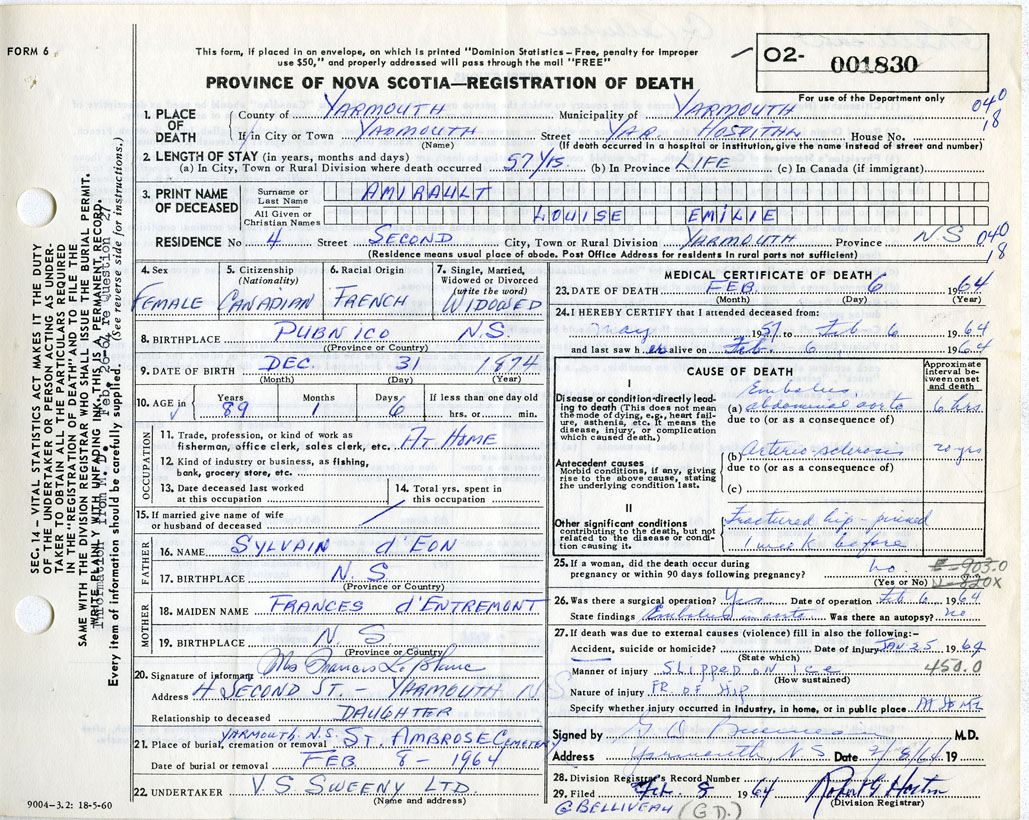 FORM 6
This form, if placed in an envelope, on which is printed "Dominion Statistics – Free, penalty for improper
use $50," and properly addressed will pass through the mail "FREE"
PROVINCE OF NOVA SCOTIA—REGISTRATION OF DEATH
02- 001830
For use of the Department only
040
18
1. PLACE OF DEATH
County of YARMOUTH Municipality of YARMOUTH
If in City or Town YARMOUTH Street YAR. HOSPITAL House No.
(Name) (If death occurred in a hospital or institution, give the name instead of street and number)
2. LENGTH OF STAY (in years, months and days)
(a) In City, Town or Rural Division where death occurred 57 YRS (b) In Province LIFE (c) In Canada (if immigrant)
3. PRINT NAME OF DECEASED
Surname or Last Name AMIRAULT
All Given or Christian Names LOUISE EMILIE
RESIDENCE No 4 Street SECOND City, Town or Rural Division YARMOUTH Province N.S. 040
18
(Residence means usual place of abode. Post Office Address for residents in rural parts not sufficient)
4. Sex FEMALE
5. Citizenship (Nationality) CANADIAN
6. Racial Origin FRENCH
7. Single, Married, Widowed or Divorced (write the word) WIDOWED
8. BIRTHPLACE PUBNICO N.S.
(Province or Country)
9. DATE OF BIRTH DEC. 31 1874
(Month) (Day) (Year)
10. AGE in Years 89 Months 1 Days 6 If less than one day old hrs. or min.
OCCUPATION
11. Trade, profession, or kind of work as fisherman, office clerk, sales clerk, etc. AT HOME
12. Kind of industry or business, as fishing, bank, grocery store, etc.
13. Date deceased last worked at this occupation
14. Total yrs. spent in this occupation
15. If married give name of wife or husband of deceased
FATHER
16. NAME SYLVAIN d'EON
17. BIRTHPLACE N.S.
(Province or Country)
MOTHER
18. MAIDEN NAME FRANCES d'ENTREMONT
19. BIRTHPLACE N.S.
(Province or Country)
20. Signature of informant Mrs Francis LeBlanc
Address 4 SECOND ST. – YARMOUTH N S
Relationship to deceased DAUGHTER
21. Place of burial, cremation or removal YARMOUTH, N.S. ST. AMBROSE CEMETERY
Date of burial or removal FEB 8 - 1964
22. UNDERTAKER V. S. SWEENY LTD.
(Name and address)
9004-3.2: 18-5-60
MEDICAL CERTIFICATE OF DEATH
23. DATE OF DEATH FEB 6 1964
(Month) (Day) (Year)
24. I HEREBY CERTIFY that I attended deceased from:
May 1951 to Feb 6 1964
and last saw her alive on Feb. 6 1964
CAUSE OF DEATH
Approximate interval between onset and death
I
Disease or condition directly leading to death (This does not mean the mode of dying, e.g., heart failure, asthenia, etc. It means the disease, injury, or complication which caused death.)
Embolus
(a) abdominal aorta 6 hrs
due to (or as a consequence of)
Antecedent causes
Morbid conditions, if any, giving rise to the above cause, stating the underlying condition last.
(b) Arterio-sclerosis 20 yrs
due to (or as a consequence of)
(c)
II
Other significant conditions
contributing to the death, but not related to the disease or condition causing it.
Fractured hip - pinned
1 week before
25. If a woman, did the death occur during pregnancy or within 90 days following pregnancy? no
(Yes or No)
E-903.0
N-820X
26. Was there a surgical operation? Yes Date of operation Feb 6 1964
State findings Embolus in aorta Was there an autopsy? no
27. If death was due to external causes (violence) fill in also the following:–
Accident, suicide or homicide? Date of injury JAN 25 1964
(State which)
Manner of injury SLIPPED ON ICE 450.0
(How sustained)
Nature of injury FR. OF HIP
Specify whether injury occurred in industry, in home, or in public place AT HOME
Signed by G D M.D.
Address Yarmouth N S Date 2/8/64 19
28. Division Registrar's Record Number
29. Filed Feb. 8 1964
(Division Registrar)
G BELLIVEAU (G D.)
SEC. 14 – VITAL STATISTICS ACT MAKES IT THE DUTY
OF THE UNDERTAKER OR PERSON ACTING AS UNDER-
TAKER TO OBTAIN ALL THE PARTICULARS REQUIRED
IN THE "REGISTRATION OF DEATH" AND TO FILE THE
SAME WITH THE DIVISION REGISTRAR WHO SHALL ISSUE THE BURIAL PERMIT.
WRITE PLAINLY WITH UNFADING INK. THIS IS A PERMANENT RECORD.
Information from M. D. Feb. 26-64 re Question 27.
Every item of information should be carefully supplied. (See reverse side for instructions.)